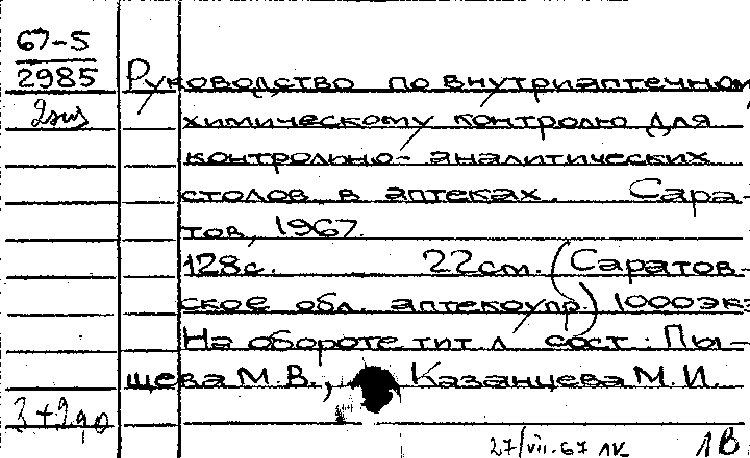 67-5
2985
2экз
Руководство по внутриаптечному
химическому контролю для
контрольно-аналитических
столов в аптеках. Сара-
тов, 1967.
128с. 22см. (Саратов-
ское обл. аптекоупр.) 1000экз
На обороте тит. л. сост.: Пы-
щева М.В., Казанцева М.И.
27/VII-67
1В